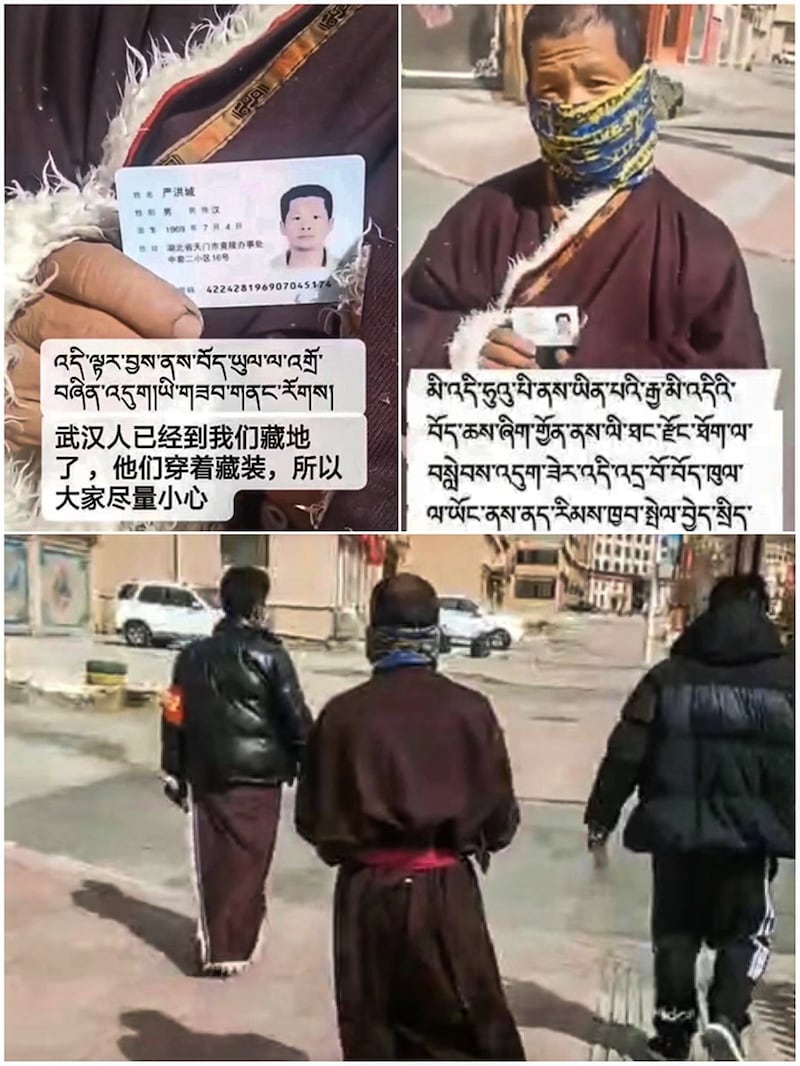 姓名 严洪城
性别 男 民族 汉
出生 1969 年 7 月 4 日
住址 湖北省天门市竟陵办事处
中套二小区16号
号码 422428196907045174
འདི་ལྟར་བྱས་ནས་བོད་ཡུལ་ལ་འགྲོ་
བཞིན་འདུག།ཡི་གཟབ་གནང་རོགས།
武汉人已经到我们藏地
了，他们穿着藏装，所以
大家尽量小心
མི་འདི་ཧུའུ་པི་ནས་ཡིན་པའི་རྒྱ་མི་འདིའི་
བོད་ཆས་ཞིག་གྱོན་ནས་ལི་ཐང་རྫོང་ཐོག་ལ་
བསླེབས་འདུག་ཟེར་འདི་འདྲ་བོ་བོད་ཁུལ་
ལ་ཡོང་ནས་ནད་རིམས་ཁྱབ་སྤེལ་བྱེད་སྲིད་